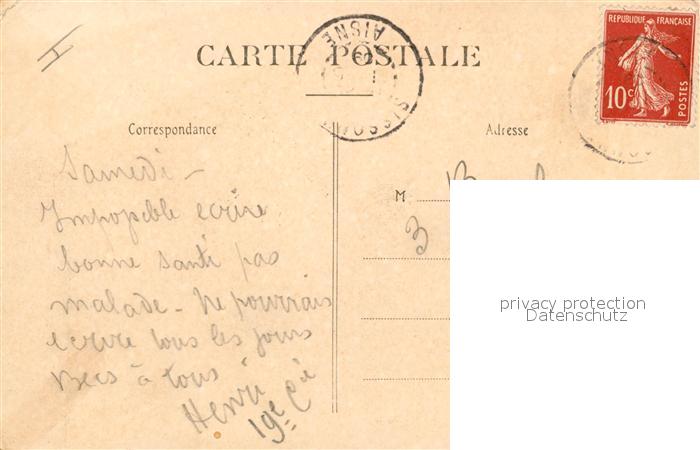 H
CARTE POSTALE
SISSONNE
AISNE
REPUBLIQUE FRANÇAISE
10c
POSTES
Correspondance
Adresse
Samedi -
Impossible ecrire
bonne santé pas
malade - Ne pourrais
ecrire tous les jours
Becs à tous
Henri
19e Cie
M
3
privacy protection
Datenschutz